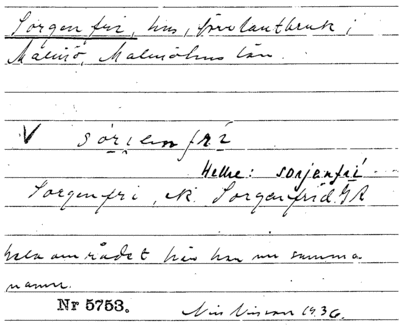 Sorgenfri, hus, f.v. lantbruk i
Malmö, Malmöhus län.
V sɔrjenfrí
Hellre: sɔrjanfrí
Sorgenfri, ek. Sorgenfrid. GR
hela området här har nu samma
namn.
Nr 5753. Nils Nilsson 1936.